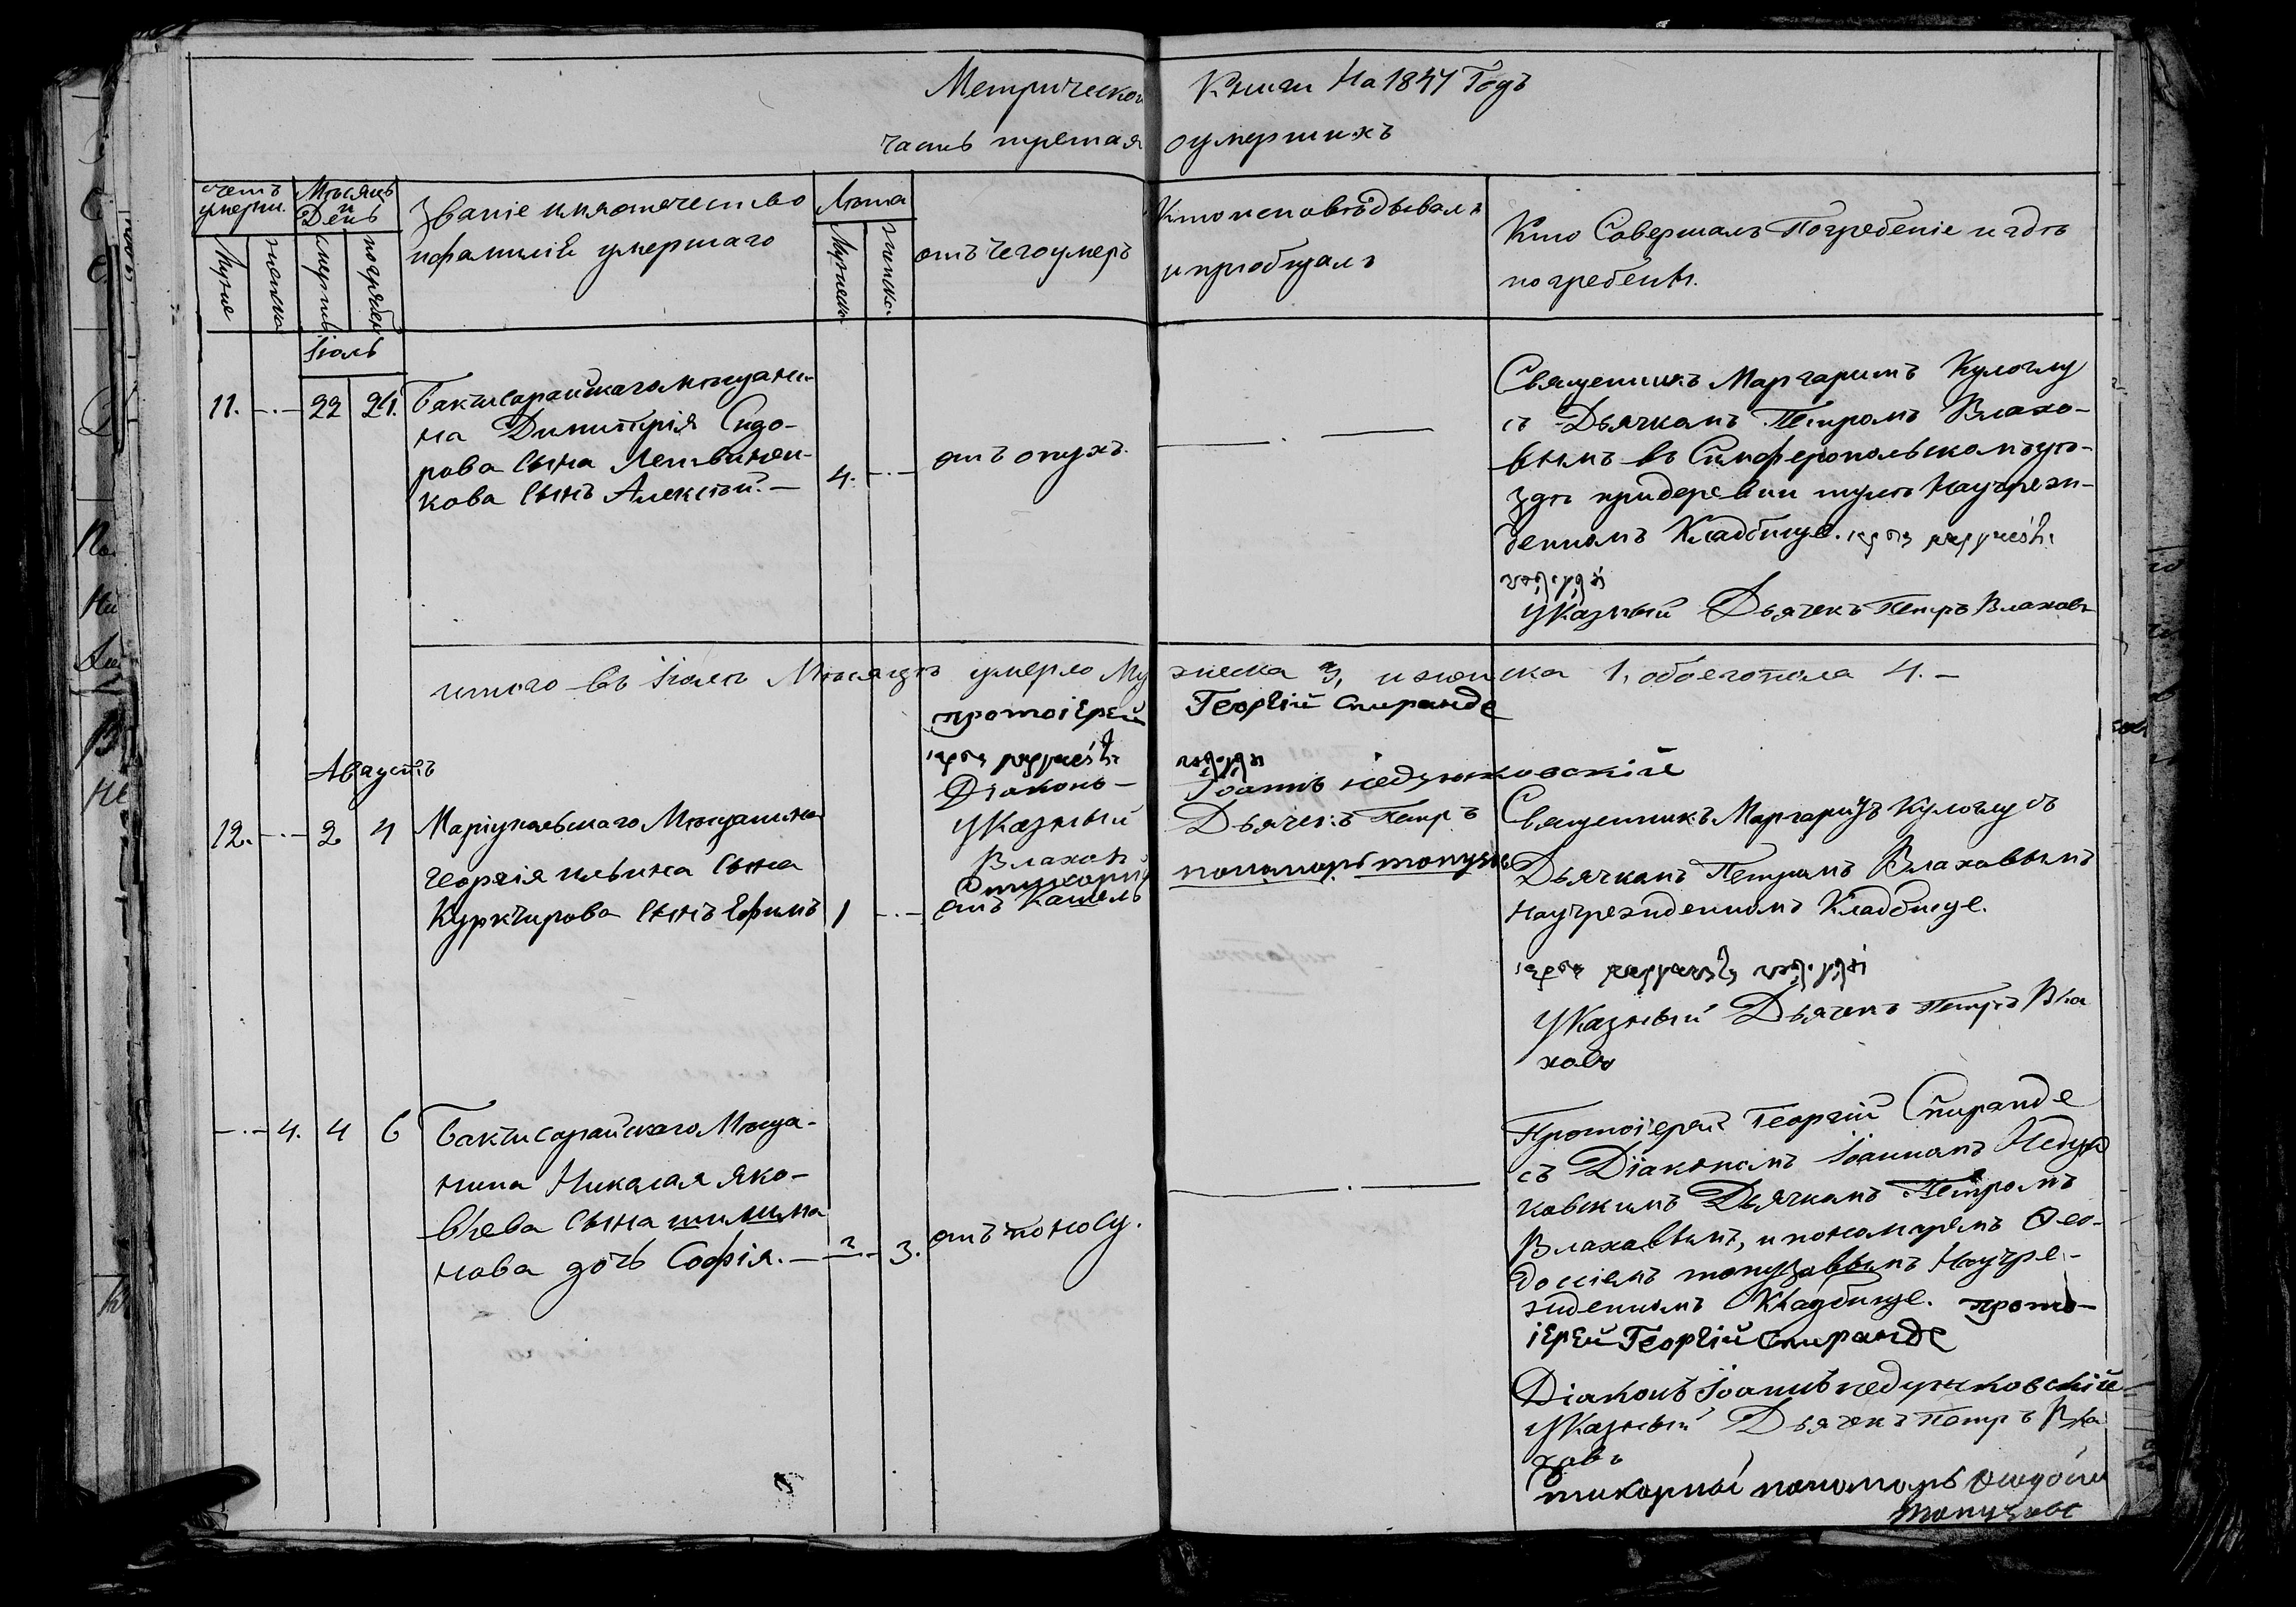 Метрической Книги На 1841 Годъ
часть третая оумершихъ
счетъ умерш.
Мѣсяцъ и День
Званіе имя отечество
ифамилія умершаго
Лѣта
отъ чего умеръ
Кто исповѣдывалъ
и приобщалъ
Кто Совершалъ Погребеніе и гдѣ
погребенъ.
Мужеск
женска
смерти
погребен
Мужеска
женска
Іюль
11. 22 24.
Бакчисарайскаго мѣщани-
на Димитрія Сидо-
рова Сына
кова Сынъ Алексѣй. —
4.
отъ опухъ.
Священникъ Маргаритъ Кулоглу
съ Дьячкамъ Петромъ Влахо-
вымъ въ Симферопольскомъ уѣ-
здѣ придеревни Научреж-
денномъ Кладбище.
Указный Дьячекъ Петръ Влаховъ
итого въ Іюлѣ Мѣсяцѣ умерло Мужеска 3, иженска 1, обоегопола 4. —
протоіерей Георгій Спиранде
Діаконъ Іоаннъ недзюковскій
Указный Дьячекъ Петръ
Влаховъ
пономарь топузов
Августъ
12. 2 4
Маріупольскаго Мѣщанина
Георгія ильина Сына
Куркчирова Сынъ Ефимъ
1
отъ Кашель
Священникъ Маргаритъ Кулоглу съ
Дьячкамъ Петрамъ Влаховымъ
Научрежденномъ Кладбище.
Указный Дьячекъ Петръ Вла
ховъ
4. 4 6
Бакчисарайскаго Мѣща-
нина Никалая Яко-
влева Сына шишма
нова дочь Софія. —
3.
отъ поносу.
Протоіерей Георгій Спиранде
съ Діакономъ Іоанномъ Недзю
ковскимъ Дьячкамъ Петромъ
Влаховымъ, и понамаремъ Ѳео-
досіемъ топузовымъ Научре-
жденномъ Кладбище. прото-
іерей Георгій Спиранде
Діаконъ Іоаннъ недзюковскій
Указный Дьячекъ Петръ Вла
ховъ
пономарь Ѳеодосій
топузовъ